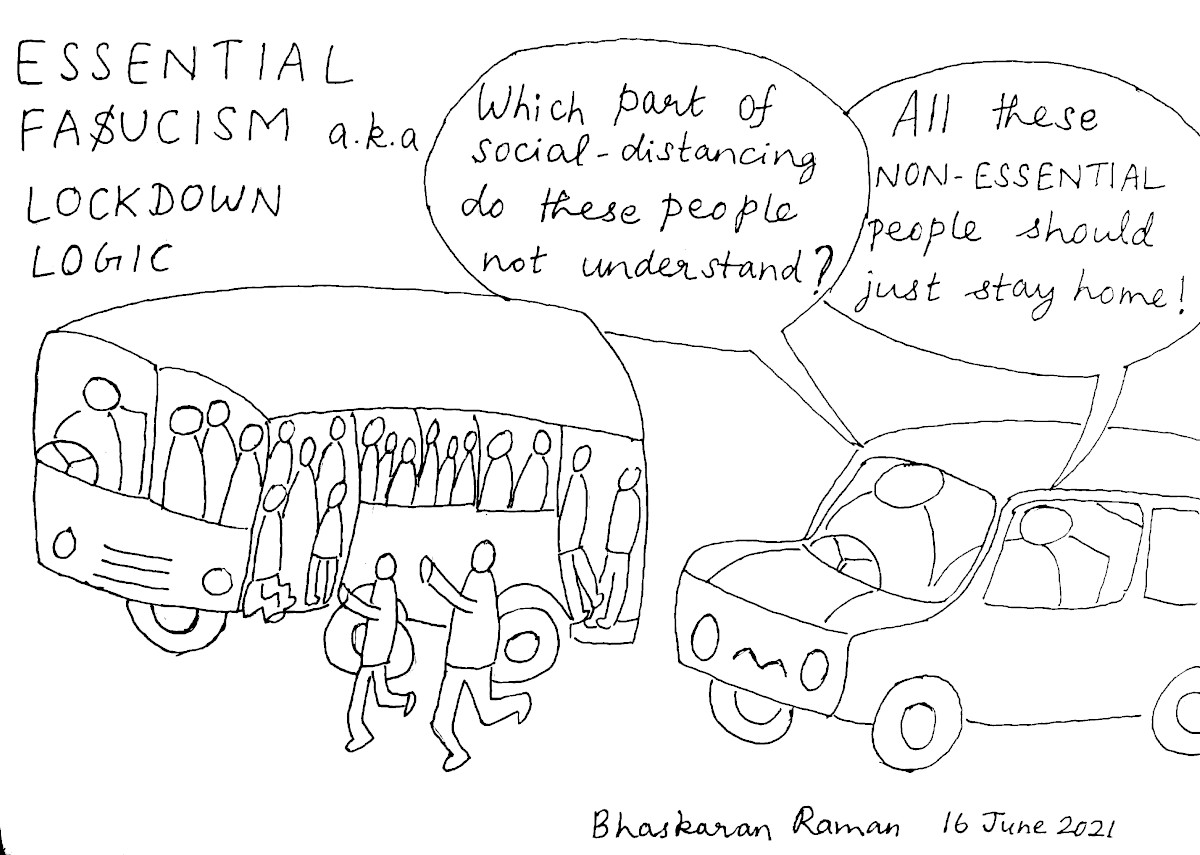 ESSENTIAL
FA$UCISM a.k.a
LOCKDOWN
LOGIC
Which part of
social-distancing
do these people
not understand?
All these
NON-ESSENTIAL
people should
just stay home!
Bhaskaran Raman 16 June 2021